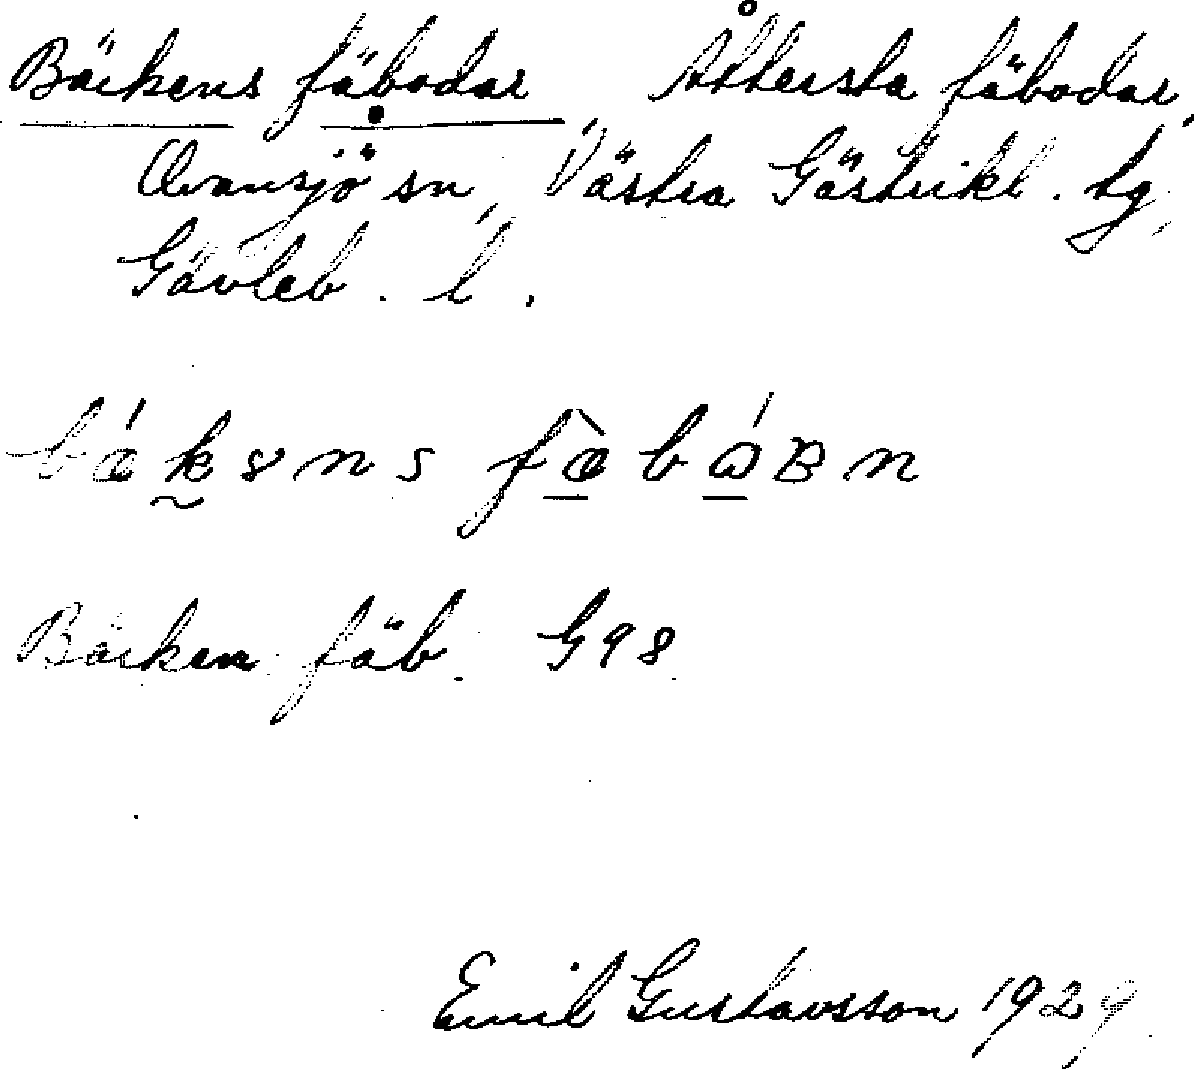 Bäckens fäbodar, Åttersta fäbodar,
Ovansjö sn, Västra Gästrikl. tg,
Gävleb. l.
Bäcken fäb. G98
Emil Gustavsson 1929